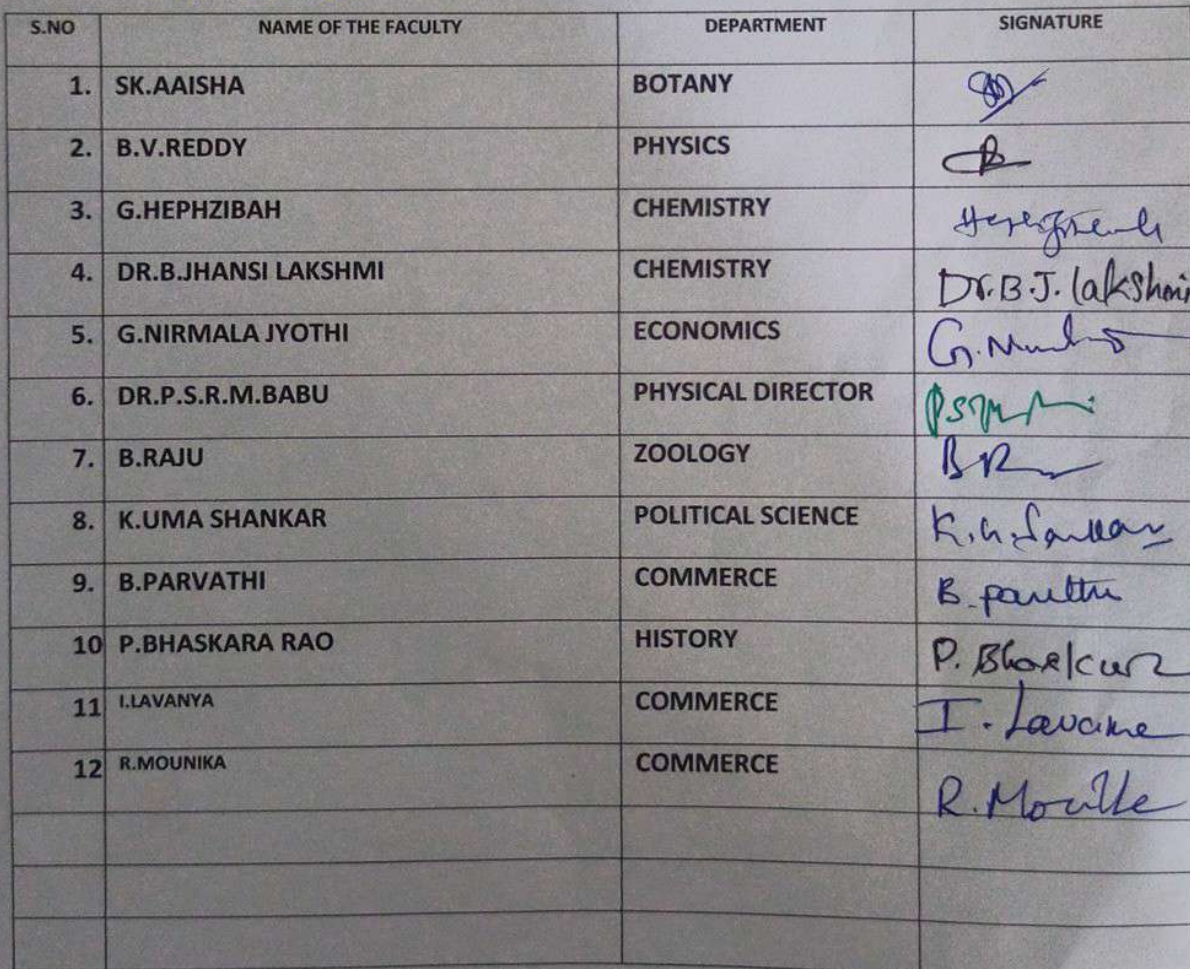 S.NO NAME OF THE FACULTY DEPARTMENT SIGNATURE
1. SK.AAISHA BOTANY
2. B.V.REDDY PHYSICS
3. G.HEPHZIBAH CHEMISTRY
4. DR.B.JHANSI LAKSHMI CHEMISTRY Dr.B.J.lakshmi
5. G.NIRMALA JYOTHI ECONOMICS
6. DR.P.S.R.M.BABU PHYSICAL DIRECTOR
7. B.RAJU ZOOLOGY
8. K.UMA SHANKAR POLITICAL SCIENCE
9. B.PARVATHI COMMERCE
10 P.BHASKARA RAO HISTORY
11 I.LAVANYA COMMERCE
12 R.MOUNIKA COMMERCE